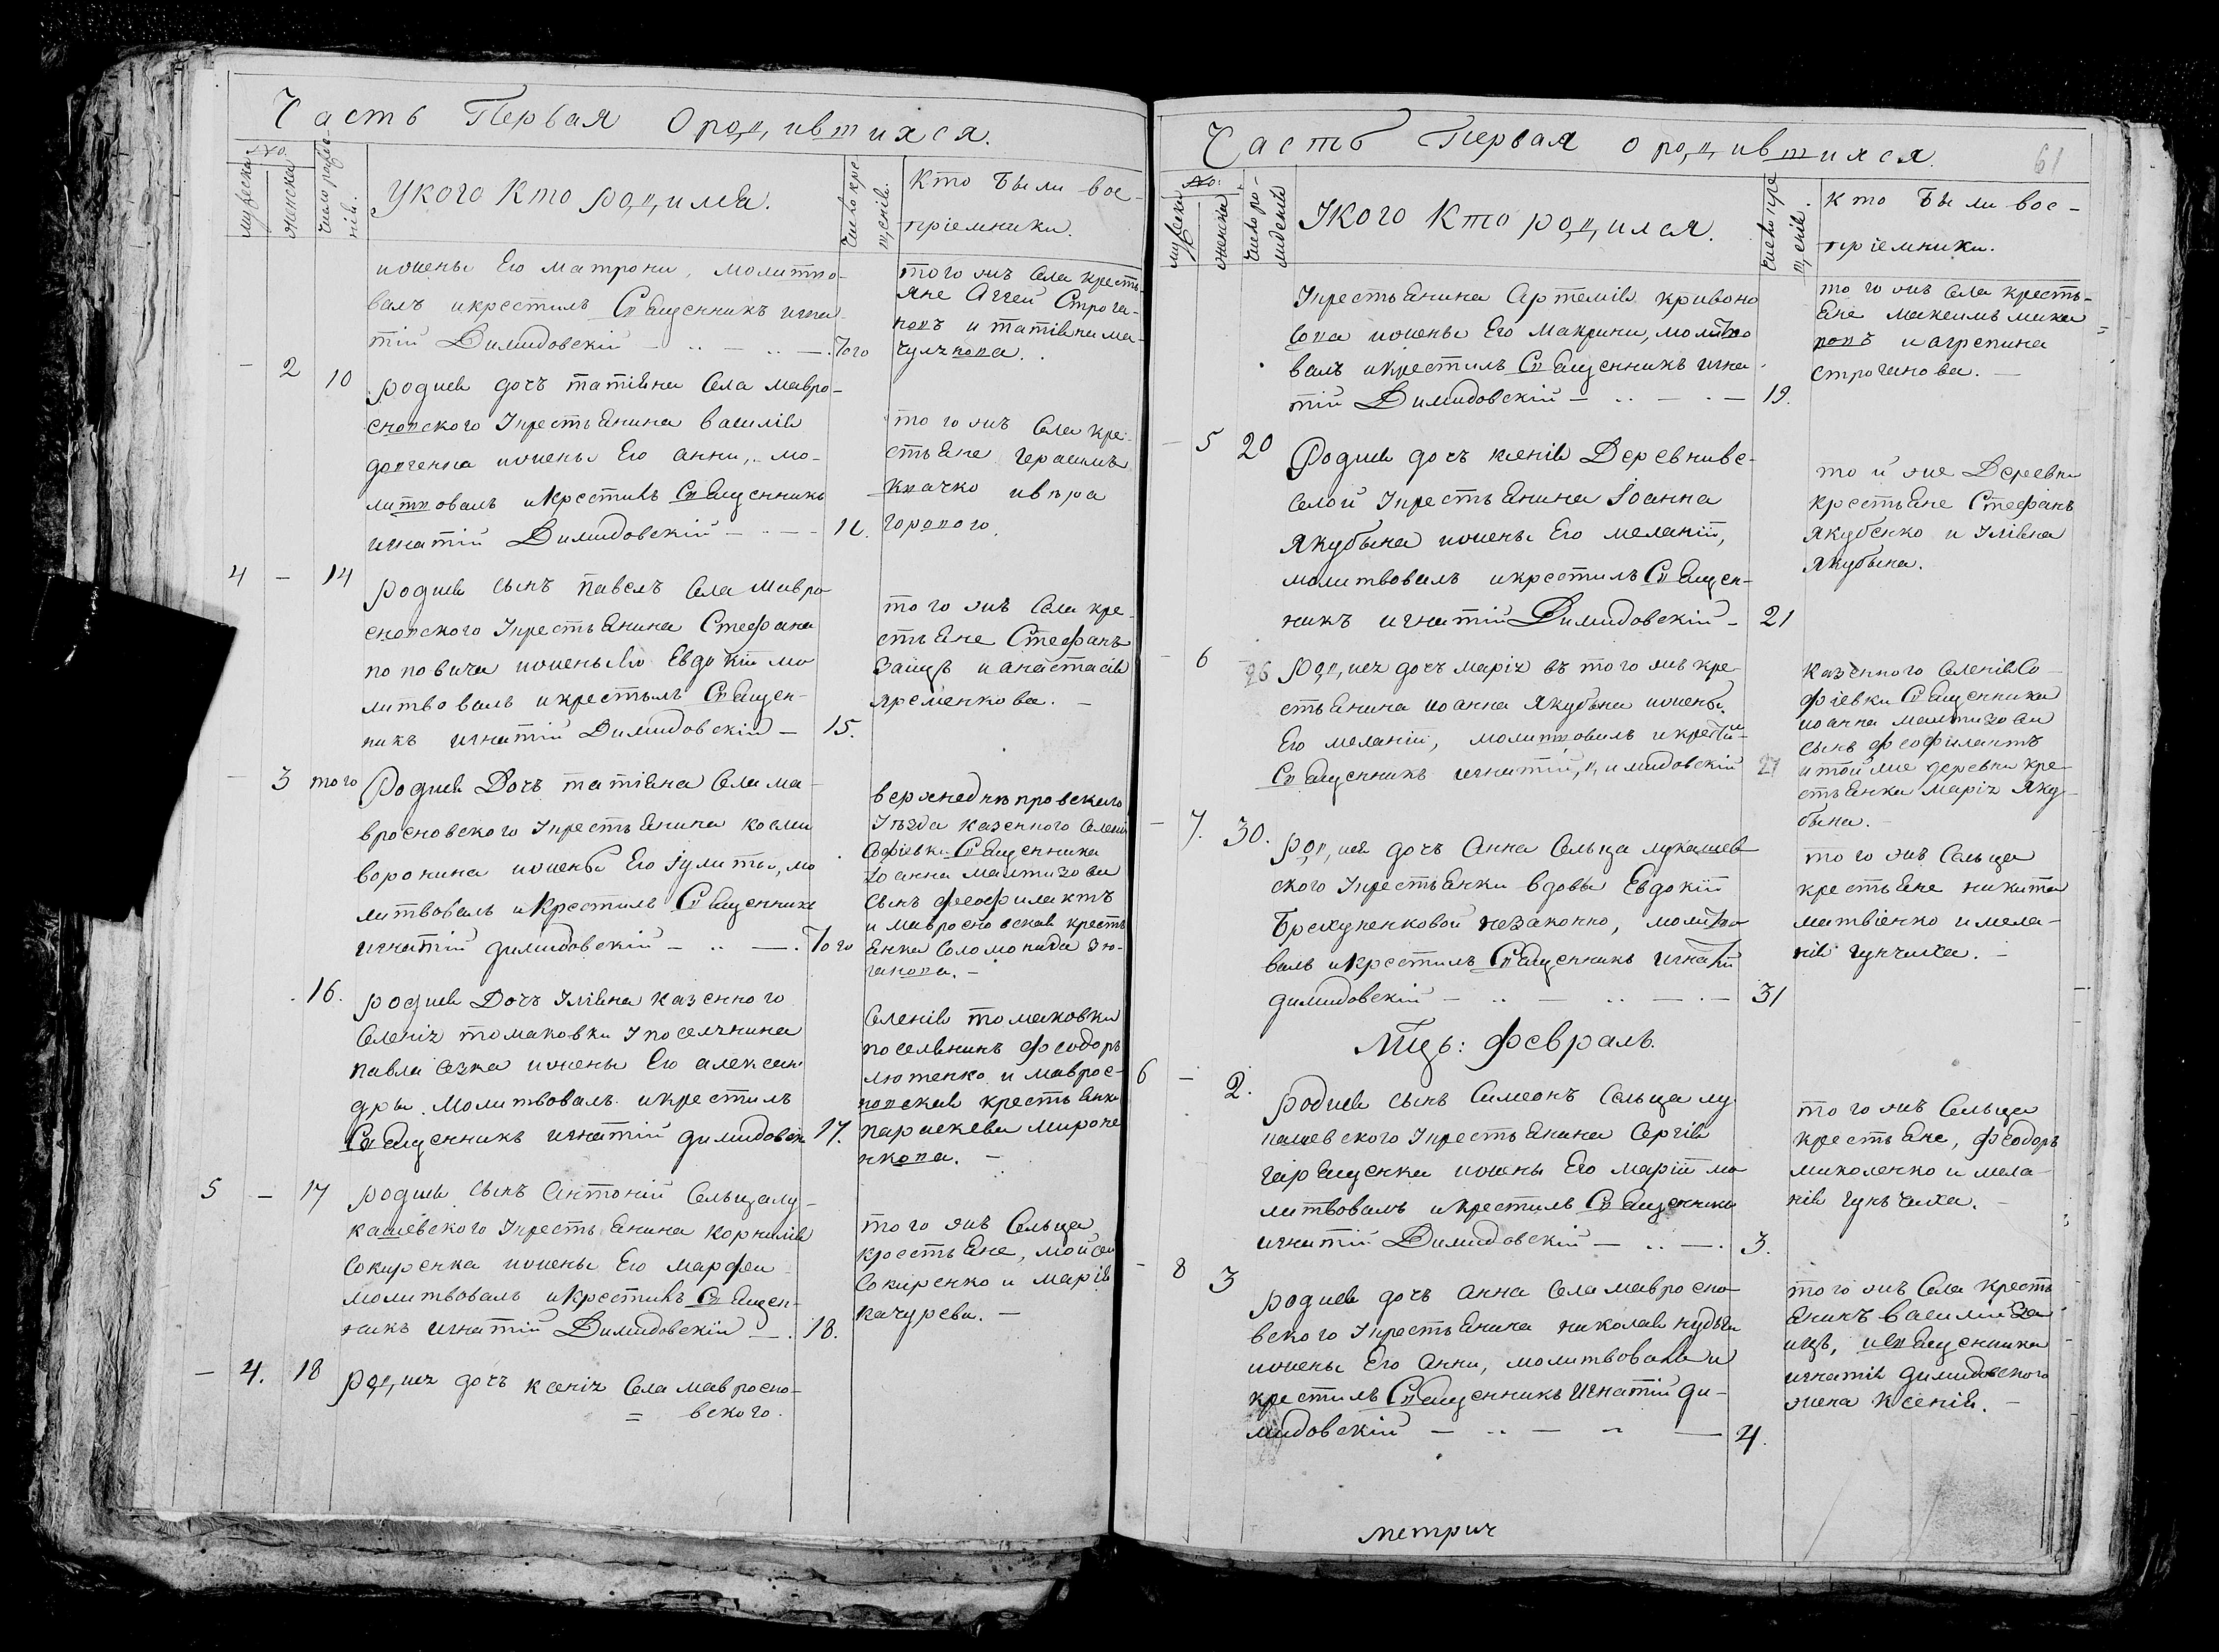 Часть Первая О родившихся.
No.
мужеска
женска
Число рожде-
нія.
У кого кто родился.
Число кре-
щенія.
Кто были вос-
пріемники.
и жены Его Матроны, молитво-
валъ и крестилъ Священникъ Игна-
тій Димидовскій — .. — .. — . Того
того жъ Села кресть-
яне Аггей Строга-
новъ и татіана ма-
— 2 10
родися дочъ татіана Села мавро-
сновского Крестьянина василія
и жены Его анны, мо-
литвовалъ и крестилъ Священникъ
игнатій Димидовскій — .. — —
того жъ Села кре-
стьяне герасимъ
квачко и вѣра
горового.
4 — 14
родися сынъ павелъ Села мавро
сновского Крестьянина Стефана
поповича и жены Его Евдокіи мо
литвовалъ и крестилъ Священ-
никъ игнатій Димидовскій — 15.
того жъ Села кре-
стьяне Стефанъ
Заицъ и анастасія
яременкова. —
— 3 того
Родися Дочъ татіана Села ма-
вросновского Крестьянина космы
воронина и жены Его Іулиты, мо
литвовалъ и крестилъ Священникъ
игнатій димидовскій — .. — . Того
верхнеднѣпровскаго
Уѣзда казенного Селенія
Софіевки Священника
Іоанна
сынъ феофилактъ
и мавросновская кресть
янка Соломонида
. 16.
родися Дочъ Уліяна казенного
Селенія томаковки поселянина
павла и жены Его алексан
дры. Молитвовалъ и крестилъ
Священникъ игнатій димидовскі 17.
Селенія томаковки
поселянинъ феодоръ
лютенко и маврос-
новская крестьянка
параскева мироне
нкова. —
5 — 17
родися сынъ Антоній Сельца лу-
кашевского Крестьянина корнилія
Сокиренка и жены Его марфы
молитвовалъ и крестилъ Священ-
никъ игнатій Димидовскій — . 18.
того жъ Сельца
крестьяне, мойсей
Сокиренко и марія
качурева. —
— 4. 18
родися дочъ ксенія Села мавросно-
= вского.
Часть Первая о родившихся.
61
No:
мужеска
женска
Число ро-
жденія
У кого кто родился.
Число кре
щенія.
Кто были вос-
пріемники.
Крестьянина Артемія кривоно
сова и жены Его Макрины, молитво
валъ и крестилъ Священникъ игна-
тій Димидовскій — .. — . — 19.
того жъ Села кресть-
яне максимъ
и агрепина
строганова. —
— 5 20
Родися дочъ ксенія Деревни ве-
селой Крестьянина Іоанна
Якубына и жены Его меланіи,
молитвовалъ и крестилъ Священ-
никъ игнатій Димидовскій — 21
той же Деревни
крестьяне Стефанъ
Якубенко и Уліяна
Якубына.
— 6 26
родися дочъ марія въ того жъ кре-
стьянина иоанна якубына и жены
Его меланіи, молитвовалъ и крести-
Священникъ игнатій димидовскій 27
казенного Селенія Со-
фіевки Священника
иоанна
сынъ феофилактъ
и той же деревни кре
стьянка марія Яку-
бына. —
— 7. 30.
родися дочъ Анна Сельца лукашев
ского Крестьянки вдовы Евдокіи
Брехуненковой незаконно, молитво
валъ и крестилъ Священникъ игнатій
димидовскій — .. — .. — . — 31
того жъ Сельца
крестьяне никита
матвіенко и мела-
нія гунчиха. —
Мцъ: февраль.
6 — 2.
родися сынъ Симеонъ Сельца лу
кашевского Крестьянина Сергія
геращенка и жены Его маріи мо
литвовалъ и крестилъ Священникъ
игнатій Димидовскій — .. — . 3.
того жъ Сельца
крестьяне, феодоръ
миколенко и мела-
нія гунчиха. —
— 8 3
родися дочъ анна Села мавросно-
вского Крестьянина николая
и жены Его Анны, молитвовалъ и
крестилъ Священникъ Игнатій ди-
мидовскій — .. — .. — 4.
того жъ Села кресть
янинъ василій За
ицъ, и Священника
игнатія димидовского
жена ксенія. —
метрич